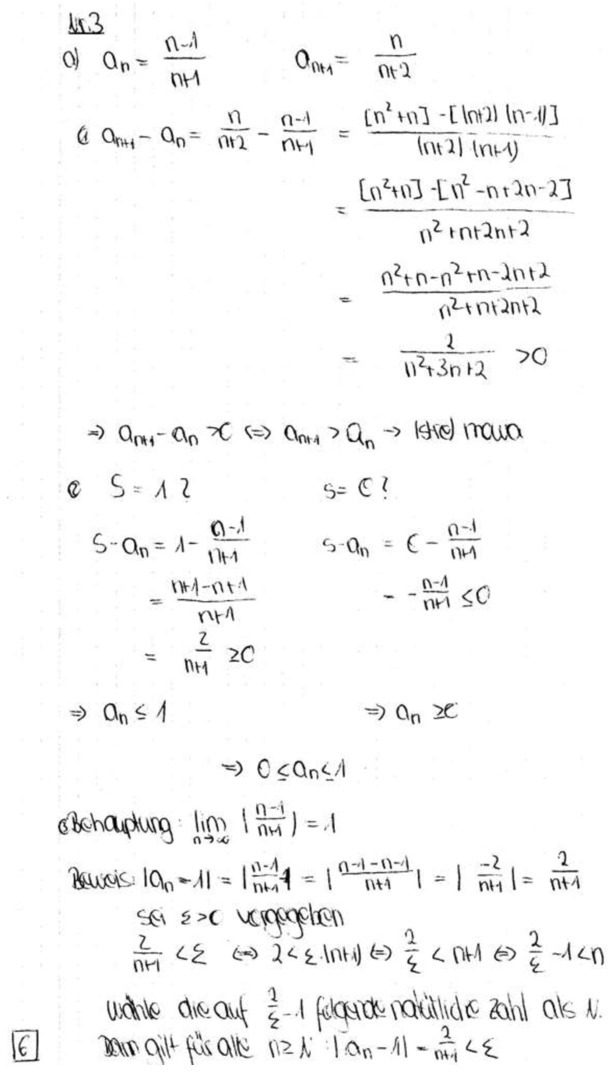 Nr.3
a) a_n = \frac{n-1}{n+1} a_{n+1} = \frac{n}{n+2}
a_{n+1} - a_n = \frac{n}{n+2} - \frac{n-1}{n+1} = \frac{[n^2+n] - [(n+2)(n-1)]}{(n+2)(n+1)}
= \frac{[n^2+n] - [n^2-n+2n-2]}{n^2+n+2n+2}
= \frac{n^2+n-n^2+n-2n+2}{n^2+n+2n+2}
= \frac{2}{n^2+3n+2} > 0
⇒ a_{n+1} - a_n > 0 ⇔ a_{n+1} > a_n → (str)
S = 1 ? S = 0 ?
S - a_n = 1 - \frac{n-1}{n+1} S - a_n = 0 - \frac{n-1}{n+1}
= \frac{n+1-n+1}{n+1} = -\frac{n-1}{n+1} ≤ 0
= \frac{2}{n+1} ≥ 0
⇒ a_n ≤ 1 ⇒ a_n ≥ 0
⇒ 0 ≤ a_n ≤ 1
Behauptung: \lim_{n→∞} (\frac{n-1}{n+1}) = 1
Beweis: |a_n - 1| = |\frac{n-1}{n+1} - 1| = |\frac{n-1-n-1}{n+1}| = |\frac{-2}{n+1}| = \frac{2}{n+1}
sei ε > 0 vorgegeben
\frac{2}{n+1} < ε ⇔ 2 < ε·(n+1) ⇔ \frac{2}{ε} < n+1 ⇔ \frac{2}{ε} - 1 < n
wähle die auf \frac{2}{ε} - 1 folgende natürliche Zahl als N.
6 Dann gilt für alle n ≥ N : |a_n - 1| = \frac{2}{n+1} < ε